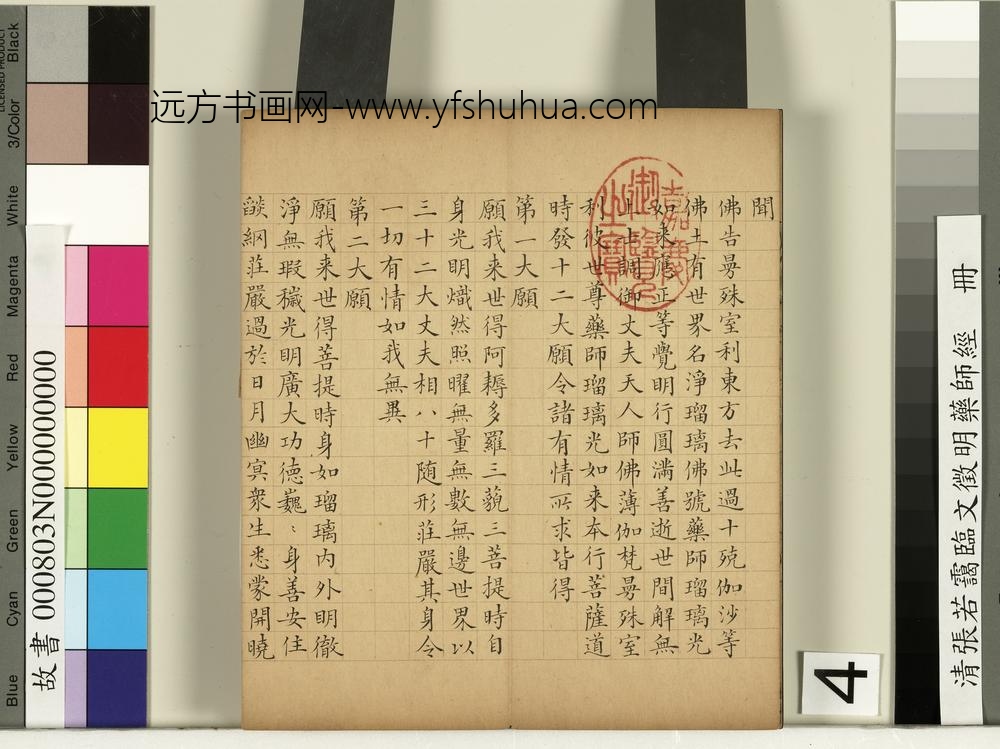 远方书画网-www.yfshuhua.com
聞
佛告曼殊室利東方去此過十殑伽沙等
佛土有世界名淨瑠璃佛號藥師瑠璃光
如来應正等覺明行圓滿善逝世間解無
上士調御丈夫天人師佛薄伽梵曼殊室
利彼世尊藥師瑠璃光如来本行菩薩道
時發十二大願令諸有情所求皆得
第一大願
願我来世得阿耨多羅三藐三菩提時自
身光明熾然照曜無量無數無邊世界以
三十二大丈夫相八十随形莊嚴其身令
一切有情如我無異
第二大願
願我来世得菩提時身如瑠璃内外明徹
淨無瑕穢光明廣大功德巍〻身善安住
燄網莊嚴過於日月幽冥衆生悉蒙開曉
嘉慶御覽之寶
清張若靄臨文徵明藥師經 冊
4
故書 000803N000000000
LICENSED PRODUCT
Black
3/Color
White
Magenta
Red
Yellow
Green
Cyan
Blue